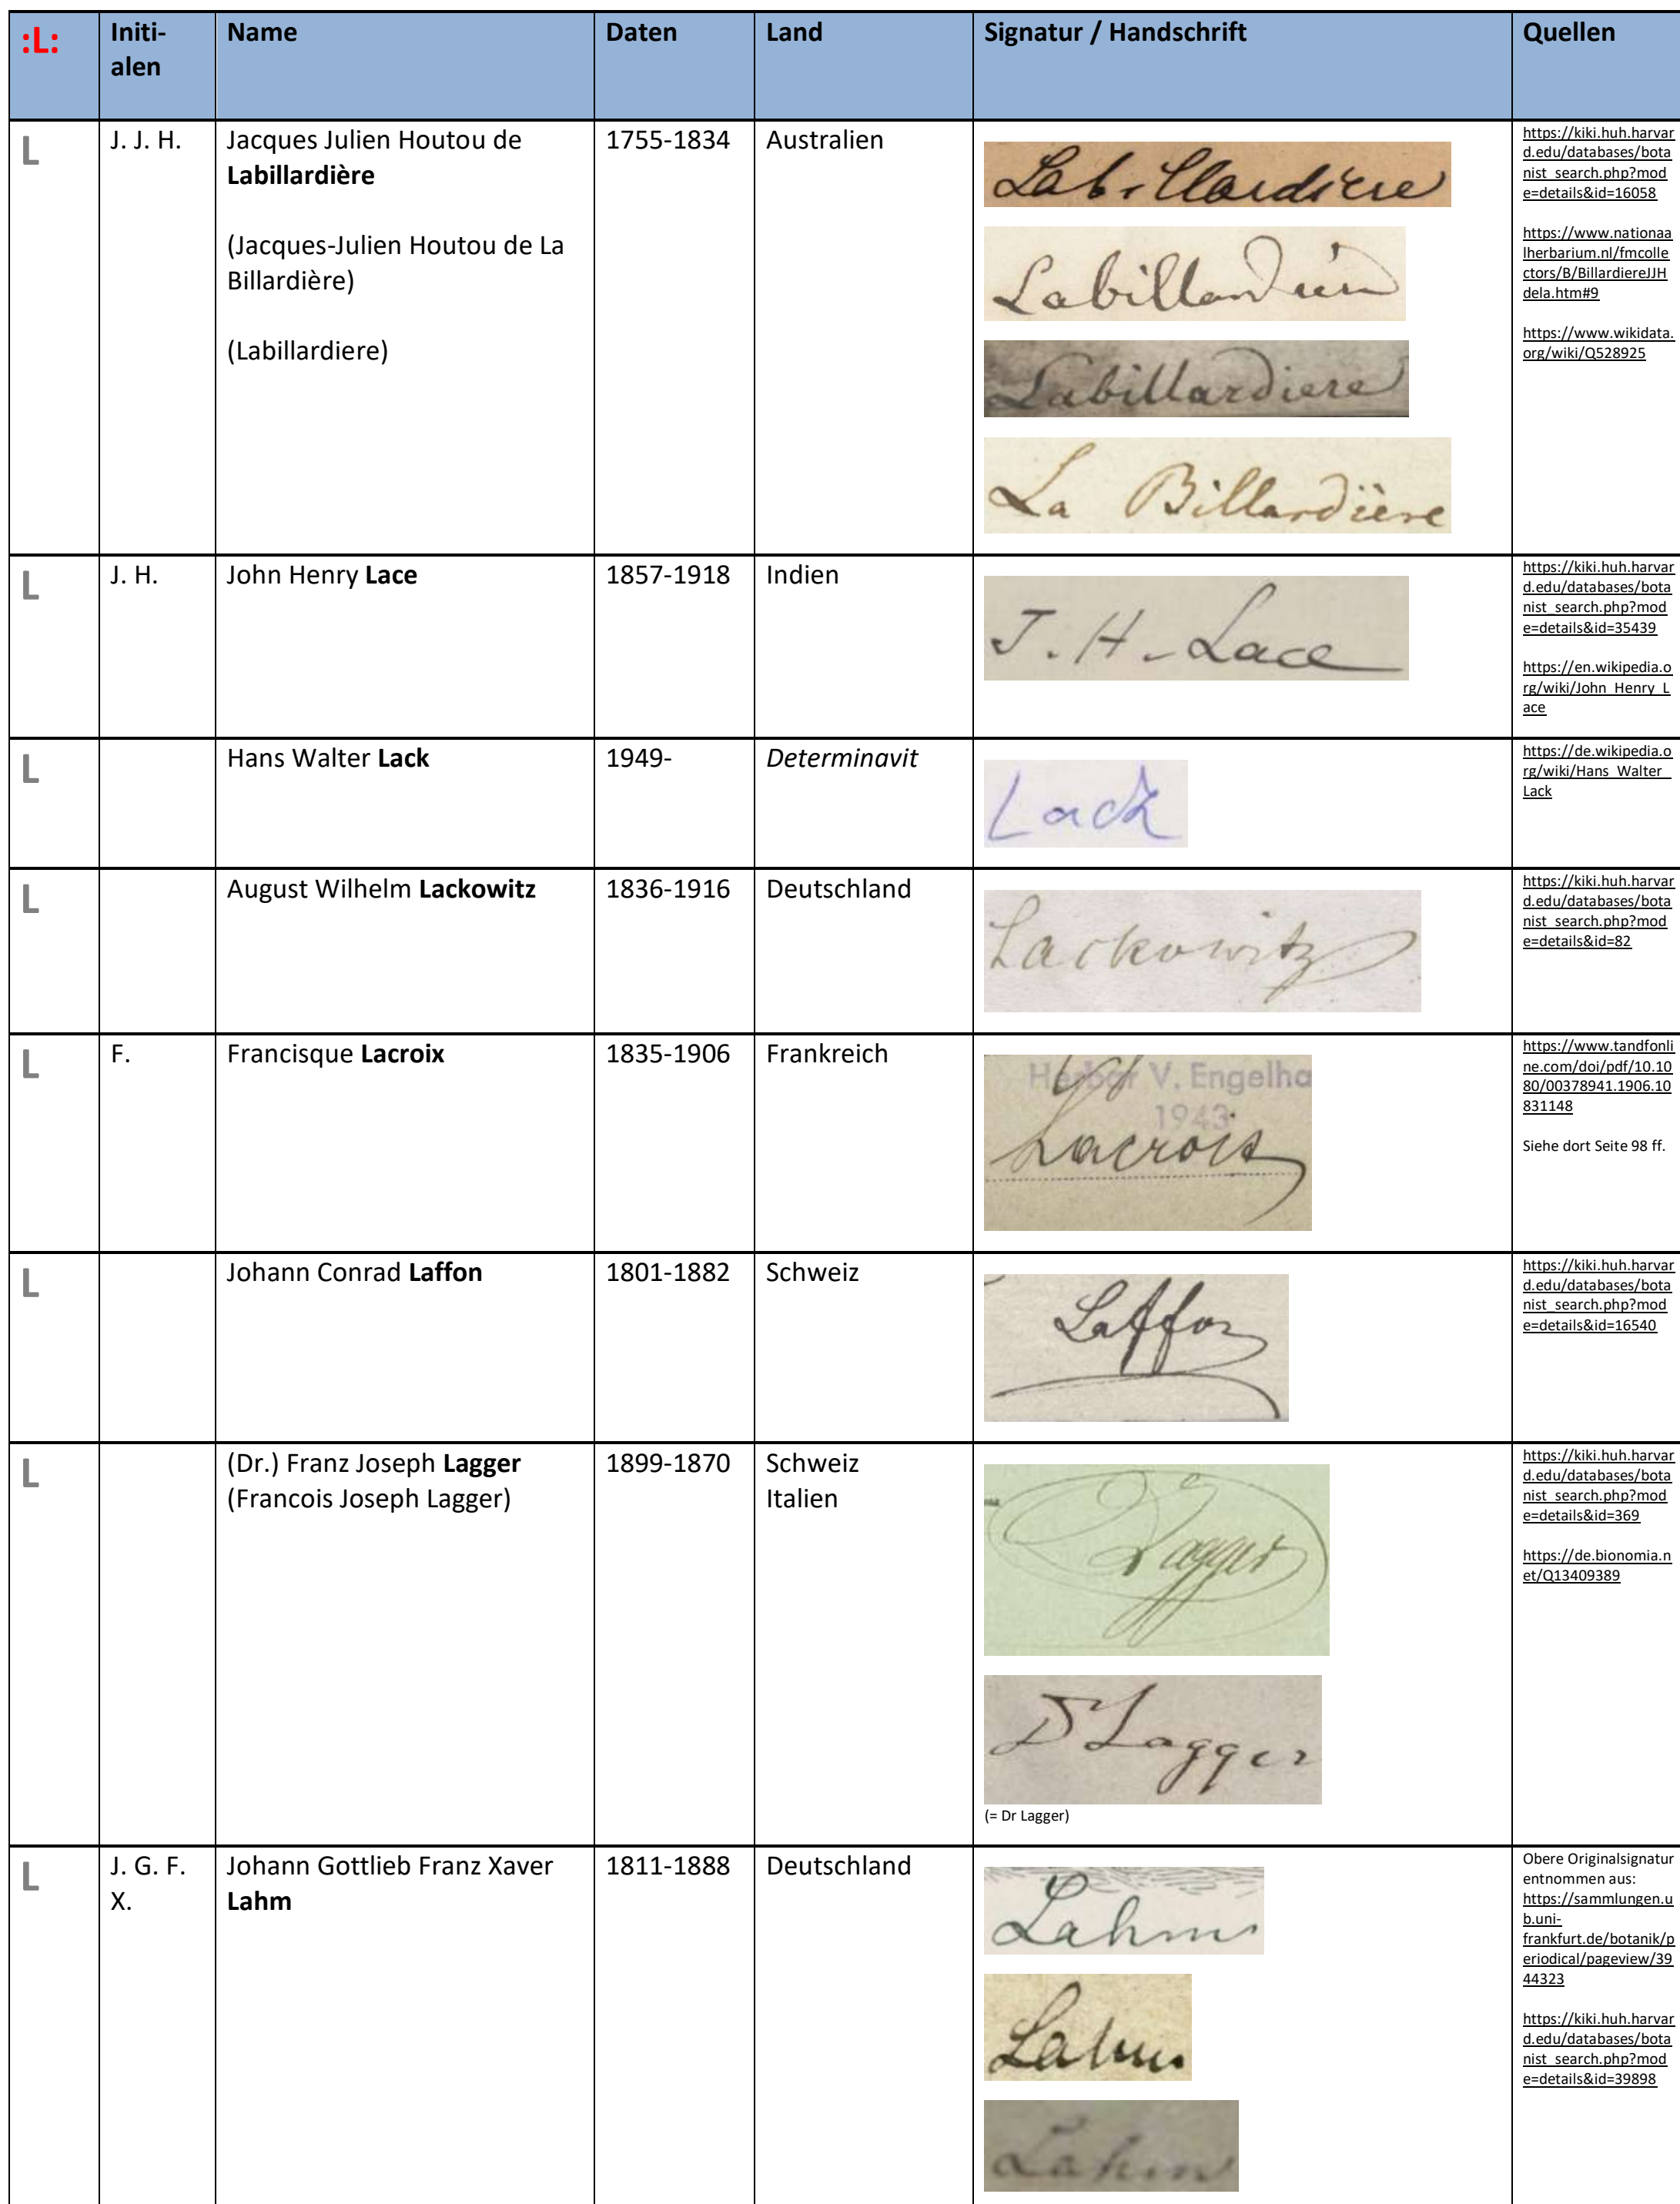 :L:
Initi-
alen
Name
Daten
Land
Signatur / Handschrift
Quellen
L
J. J. H.
Jacques Julien Houtou de
Labillardière
(Jacques-Julien Houtou de La
Billardière)
(Labillardiere)
1755-1834
Australien
Labillardiere
Labillardiere
Labillardiere
La Billardière
https://kiki.huh.harvar
d.edu/databases/bota
nist_search.php?mod
e=details&id=16058
https://www.nationaa
lherbarium.nl/fmcolle
ctors/B/BillardiereJJH
dela.htm#9
https://www.wikidata.
org/wiki/Q528925
L
J. H.
John Henry Lace
1857-1918
Indien
J. H. Lace
https://kiki.huh.harvar
d.edu/databases/bota
nist_search.php?mod
e=details&id=35439
https://en.wikipedia.o
rg/wiki/John_Henry_L
ace
L
Hans Walter Lack
1949-
Determinavit
Lack
https://de.wikipedia.o
rg/wiki/Hans_Walter_
Lack
L
August Wilhelm Lackowitz
1836-1916
Deutschland
Lackowitz
https://kiki.huh.harvar
d.edu/databases/bota
nist_search.php?mod
e=details&id=82
L
F.
Francisque Lacroix
1835-1906
Frankreich
Herbar V. Engelha
1943
Lacroix
https://www.tandfonli
ne.com/doi/pdf/10.10
80/00378941.1906.10
831148
Siehe dort Seite 98 ff.
L
Johann Conrad Laffon
1801-1882
Schweiz
Laffon
https://kiki.huh.harvar
d.edu/databases/bota
nist_search.php?mod
e=details&id=16540
L
(Dr.) Franz Joseph Lagger
(Francois Joseph Lagger)
1899-1870
Schweiz
Italien
Lagger
Dr Lagger
(= Dr Lagger)
https://kiki.huh.harvar
d.edu/databases/bota
nist_search.php?mod
e=details&id=369
https://de.bionomia.n
et/Q13409389
L
J. G. F.
X.
Johann Gottlieb Franz Xaver
Lahm
1811-1888
Deutschland
Lahm
Lahm
Lahm
Obere Originalsignatur
entnommen aus:
https://sammlungen.u
b.uni-
frankfurt.de/botanik/p
eriodical/pageview/39
44323
https://kiki.huh.harvar
d.edu/databases/bota
nist_search.php?mod
e=details&id=39898